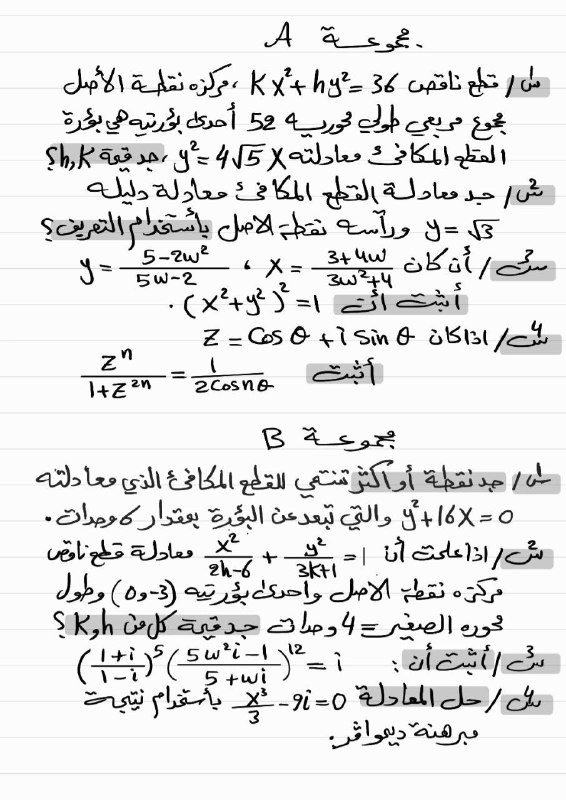 مجموعة A
س1/ قطع ناقص kx²+hy²=36 ، مركزه نقطة الأصل
مجموع مربعي طولي محوريه 52 أحدى بؤرتيه هي بؤرة
القطع المكافئ معادلته y²=4√5 x ، جد قيمة h,k؟
س2/ جد معادلة القطع المكافئ معادلة دليله
y=√3 ورأسه نقطة الاصل بأستخدام التعريف؟
س3/ أن كان x = (3+4w)/(3w²+4) ، y = (5-2w²)/(5w-2)
أثبت أن (x²+y²)²=1 .
س4/ اذا كان Z = Cos θ + i Sin θ
أثبت Zⁿ/(1+Z²ⁿ) = 1/(2Cosnθ)
مجموعة B
س1/ جد نقطة أو أكثر تنتمي للقطع المكافئ الذي معادلته
y²+16x=0 والتي تبعد عن البؤرة بمقدار ك وحدات .
س2/ اذا علمت أن x²/(2h-6) + y²/(3k+1) = 1 معادلة قطع ناقص
مركزه نقطة الاصل واحدى بؤرتيه (3-,0) وطول
محوره الصغير = 4 وحدات جد قيمة كل من k,h ؟
س3/ أثبت أن : ((1+i)/(1-i))⁵ ((5w²i-1)/(5+wi))¹² = i
س4/ حل المعادلة x³/3 - 9i = 0 بأستخدام نتيجة
مبرهنة ديموافر .